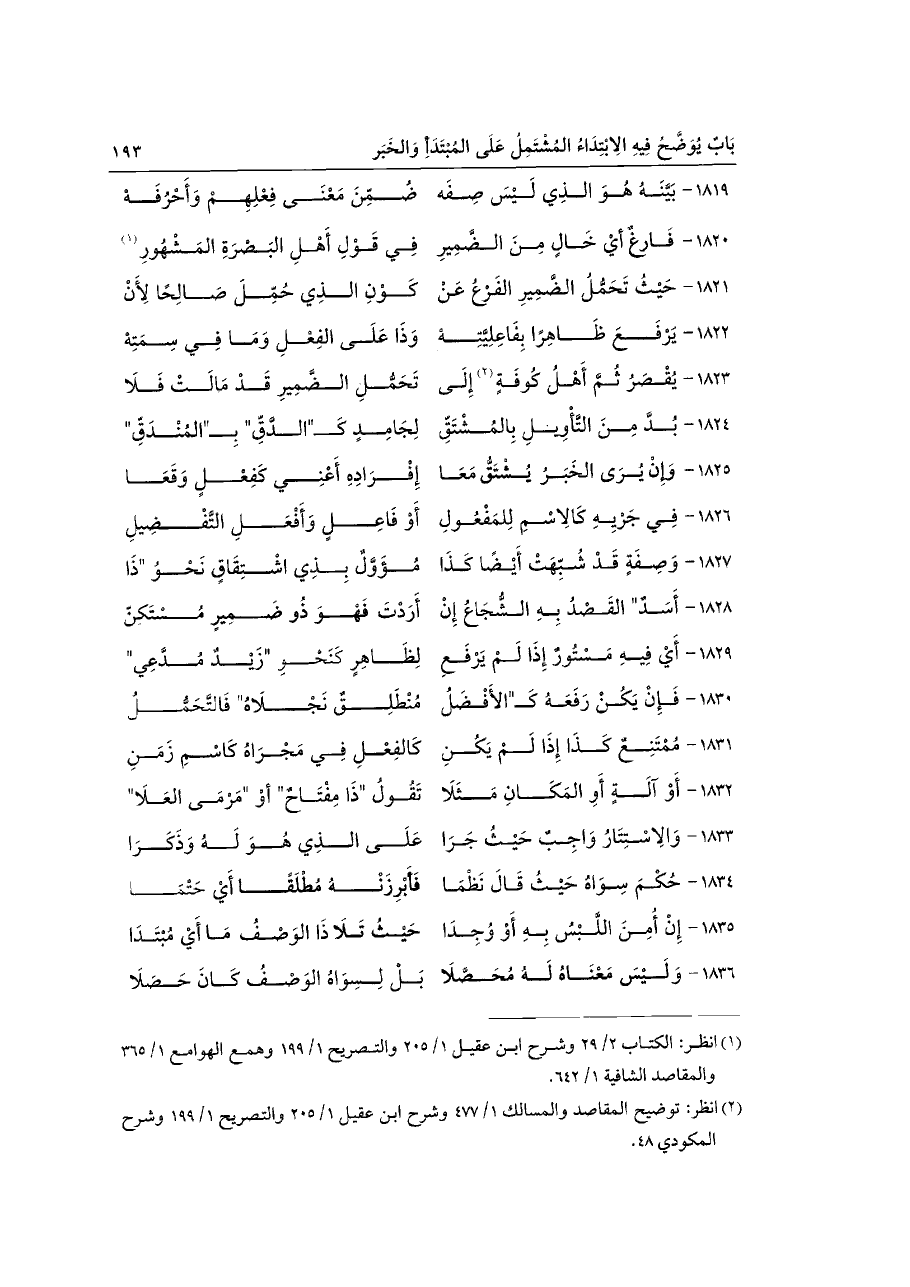 بَابٌ يُوَضَّحُ فِيهِ الِابْتِدَاءُ المُشْتَمِلُ عَلَى المُبْتَدَأِ وَالخَبَر ١٩٣
١٨١٩- بَيَّنَهُ هُوَ الذِي لَيْسَ صِفَه ضُمِّنَ مَعْنَى فِعْلِهِمْ وَأَحْرُفَهْ
١٨٢٠- فَارِغٌ أيْ خَالٍ مِنَ الضَّمِيرِ فِي قَوْلِ أَهْلِ البَصْرَةِ المَشْهُورِ(١)
١٨٢١- حَيْثُ تَحَمُّلُ الضَّمِيرِ الفَرْعُ عَنْ كَوْنِ الذِي حُمِّلَ صَالِحًا لِأَنْ
١٨٢٢- يَرْفَعَ ظَاهِرًا بِفَاعِلِيَّتِهْ وَذَا عَلَى الفِعْلِ وَمَا فِي سِمَتِهْ
١٨٢٣- يُقْصَرُ ثُمَّ أَهْلُ كُوفَةٍ(٢) إِلَى تَحَمُّلِ الضَّمِيرِ قَدْ مَالَتْ فَلَا
١٨٢٤- بُدَّ مِنَ التَّأْوِيلِ بِالمُشْتَقِّ لِجَامِدٍ كَـ"الدَّقِّ" بِـ"المُنْدَقِّ"
١٨٢٥- وَإِنْ يُرَى الخَبَرُ يُشْتَقُّ مَعَا إِفْرَادِهِ أَعْنِي كَفِعْلٍ وَقَعَا
١٨٢٦- فِي جَرْيِهِ كَالِاسْمِ لِلمَفْعُولِ أَوْ فَاعِلٍ وَأَفْعَلِ التَّفْضِيلِ
١٨٢٧- وَصِفَةٍ قَدْ شُبِّهَتْ أَيْضًا كَذَا مُؤَوَّلٌ بِذِي اشْتِقَاقٍ نَحْوُ "ذَا
١٨٢٨- أَسَدٌ" القَصْدُ بِهِ الشُّجَاعُ إِنْ أَرَدْتَ فَهْوَ ذُو ضَمِيرٍ مُسْتَكِنّ
١٨٢٩- أَيْ فِيهِ مَسْتُورٌ إِذَا لَمْ يَرْفَعِ لِظَاهِرٍ كَنَحْوِ "زَيْدٌ مُدَّعِي"
١٨٣٠- فَإِنْ يَكُنْ رَفَعَهُ كَـ"الأَفْضَلُ مُنْطَلِقٌ نَجْلَاهُ" فَالتَّحَمُّلُ
١٨٣١- مُمْتَنِعٌ كَذَا إِذَا لَمْ يَكُنِ كَالفِعْلِ فِي مَجْرَاهُ كَاسْمِ زَمَنِ
١٨٣٢- أَوْ آلَةٍ أَوِ المَكَانِ مَثَلَا تَقُولُ "ذَا مِفْتَاحٌ" أوْ "مَرْمَى العَلَا"
١٨٣٣- وَالِاسْتِتَارُ وَاجِبٌ حَيْثُ جَرَا عَلَى الذِي هُوَ لَهُ وَذَكَرَا
١٨٣٤- حُكْمَ سِوَاهُ حَيْثُ قَالَ نَظْمَا فَأَبْرِزَنْهُ مُطْلَقًا أَيْ حَتْمَا
١٨٣٥- إِنْ أُمِنَ اللَّبْسُ بِهِ أَوْ وُجِدَا حَيْثُ تَلَا ذَا الوَصْفُ مَا أَيْ مُبْتَدَا
١٨٣٦- وَلَيْسَ مَعْنَاهُ لَهُ مُحَصَّلَا بَلْ لِسِوَاهُ الوَصْفُ كَانَ حَصَلَا
(١) انظر: الكتاب ٢/ ٢٩ وشرح ابن عقيل ١/ ٢٠٥ والتصريح ١/ ١٩٩ وهمع الهوامع ١/ ٣٦٥
والمقاصد الشافية ١/ ٦٤٢.
(٢) انظر: توضيح المقاصد والمسالك ١/ ٤٧٧ وشرح ابن عقيل ١/ ٢٠٥ والتصريح ١/ ١٩٩ وشرح
المكودي ٤٨.